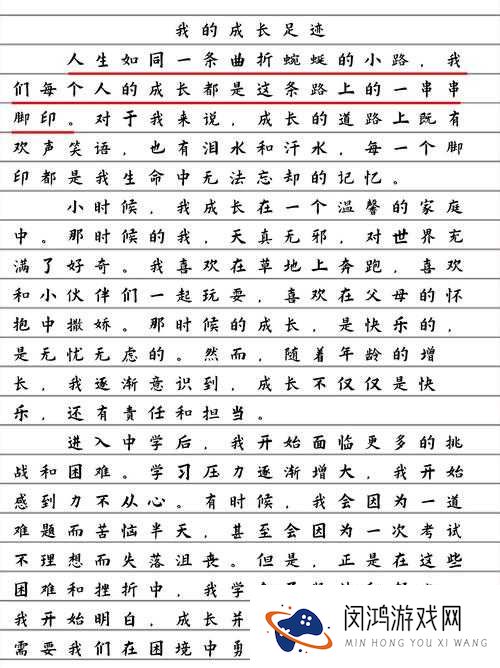 我的成长足迹
人生如同一条曲折蜿蜒的小路，我
们每个人的成长都是这条路上的一串串
脚印。对于我来说，成长的道路上既有
欢声笑语，也有泪水和汗水，每一个脚
印都是我生命中无法忘却的记忆。
小时候，我成长在一个温馨的家庭
中。那时候的我，天真无邪，对世界充
满了好奇。我喜欢在草地上奔跑，喜欢
和小伙伴们一起玩耍，喜欢在父母的怀
抱中撒娇。那时候的成长，是快乐的，
是无忧无虑的。然而，随着年龄的增
长，我逐渐意识到，成长不仅仅是快
乐，还有责任和担当。
进入中学后，我开始面临更多的挑
战和困难。学习压力逐渐增大，我开始
感到力不从心。有时候，我会因为一道
难题而苦恼半天，甚至会因为一次考试
不理想而失落沮丧。但是，正是在这些
困难和挫折中，我学
我开始明白，成长并
需要我们在困境中勇
闵鸿游戏网
MIN HONG YOU XI WANG